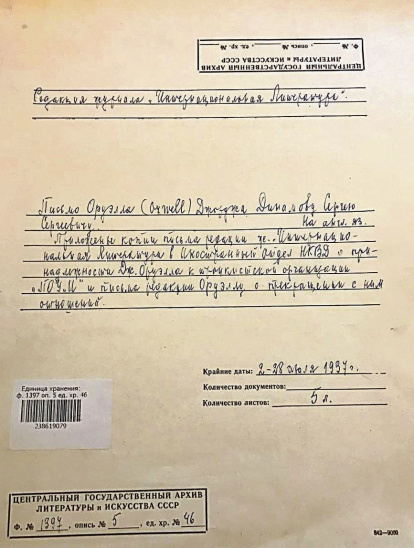 ЦЕНТРАЛЬНЫЙ ГОСУДАРСТВЕННЫЙ АРХИВ
ЛИТЕРАТУРЫ и ИСКУССТВА СССР
Ф. № опись № ед. хр. №
Редакция журнала „Интернациональная Литература".
Письмо Оруэлла (Orwell) Джорджа Динамову Сергею
Сергеевичу. На англ. яз.
Приложены копии письма редакции ж. „Интернацио-
нальная Литература в Иностранный отдел НКВД о при-
надлежности Дж. Оруэлла к троцкистской организации
„ПОУМ" и письма редакции Оруэллу о прекращении с ним
отношений.
Крайние даты: 2-28 июля 1937 г.
Количество документов:
Количество листов: 5 л.
Единица хранения:
ф. 1397 оп. 5 ед. хр. 46
238619079
ЦЕНТРАЛЬНЫЙ ГОСУДАРСТВЕННЫЙ АРХИВ
ЛИТЕРАТУРЫ и ИСКУССТВА СССР
Ф. № 1397, опись № 5, ед. хр. № 46